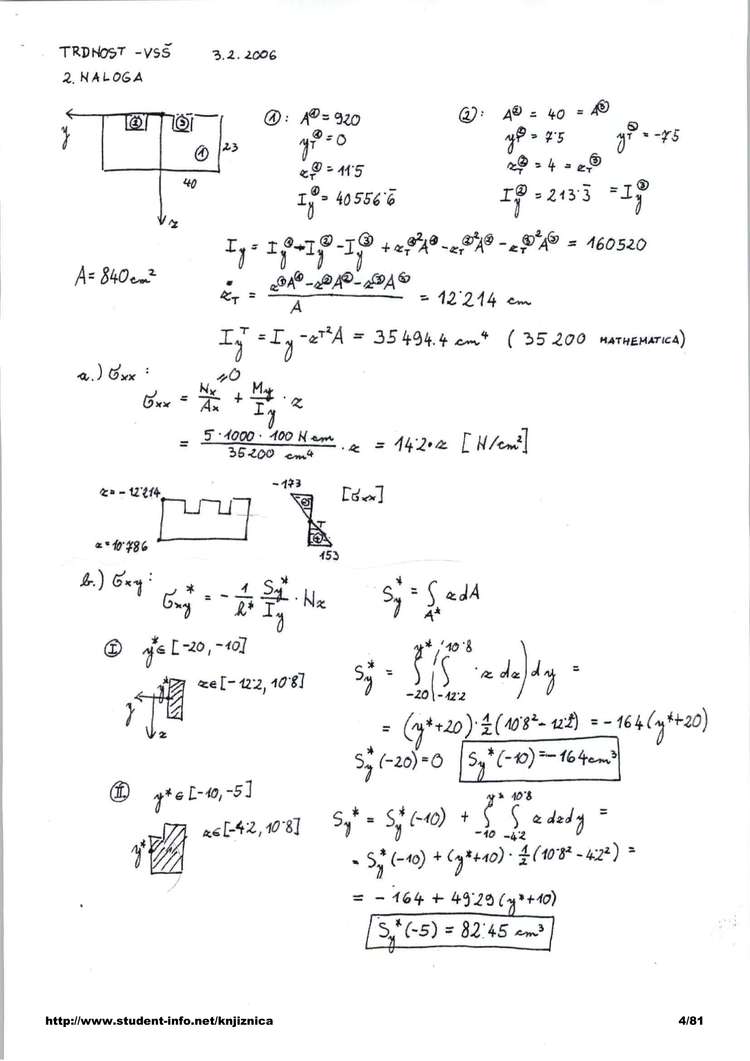 TRDNOST - VSŠ 3.2.2006
2. NALOGA
y ② ③ ① 23
40
z
①: A^① = 920
y_T^① = 0
z_T^① = 11.5
I_y^① = 40556.6̄
②: A^② = 40 = A^③
y_T^② = 7.5 y_T^③ = -7.5
z_T^② = 4 = z_T^③
I_y^② = 213.3̄ = I_y^③
I_y = I_y^① - I_y^② - I_y^③ + z_T^①² A^① - z_T^②² A^② - z_T^③² A^③ = 160520
A = 840 cm²
z_T = (z^① A^① - z^② A^② - z^③ A^③) / A = 12.214 cm
I_y^T = I_y - z_T² A = 35494.4 cm⁴ (35200 MATHEMATICA)
a.) σxx:
σxx = N_x / A_x + M_y / I_y · z
= 5·1000·100 N cm / 35200 cm⁴ · z = 14.2·z [N/cm²]
z = -12.214
z = 10.786
-173 ⊖ T ⊕ 153 [σxx]
b.) σxy:
σxy* = - 1/h* S_y*/I_y · N_z S_y* = ∫_A* z dA
Ⓘ y* ∈ [-20, -10]
z ∈ [-12.2, 10.8]
y* y z
S_y* = ∫_-20^y* (∫_-12.2^10.8 z dz) dy =
= (y*+20) · 1/2 (10.8² - 12.2²) = -16.4 (y*+20)
S_y*(-20) = 0 S_y*(-10) = -164 cm³
Ⓘ Ⓘ y* ∈ [-10, -5]
y* z ∈ [-4.2, 10.8]
S_y* = S_y*(-10) + ∫_-10^y* ∫_-4.2^10.8 z dz dy =
= S_y*(-10) + (y*+10) · 1/2 (10.8² - 4.2²) =
= -164 + 49.29 (y*+10)
S_y*(-5) = 82.45 cm³
http://www.student-info.net/knjiznica 4/81